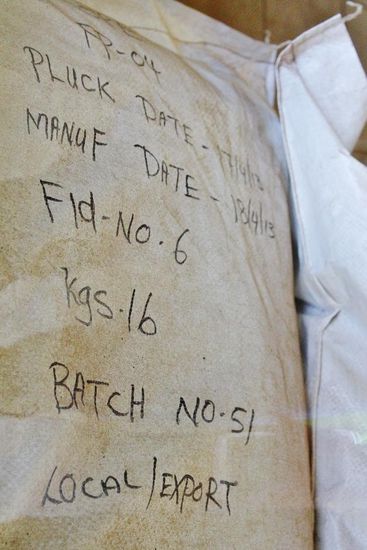 PP-04
PLUCK DATE - 17/4/13
MANUF DATE - 18/4/13
Fld-No. 6
Kgs. 16
BATCH NO. 51
LOCAL/EXPORT